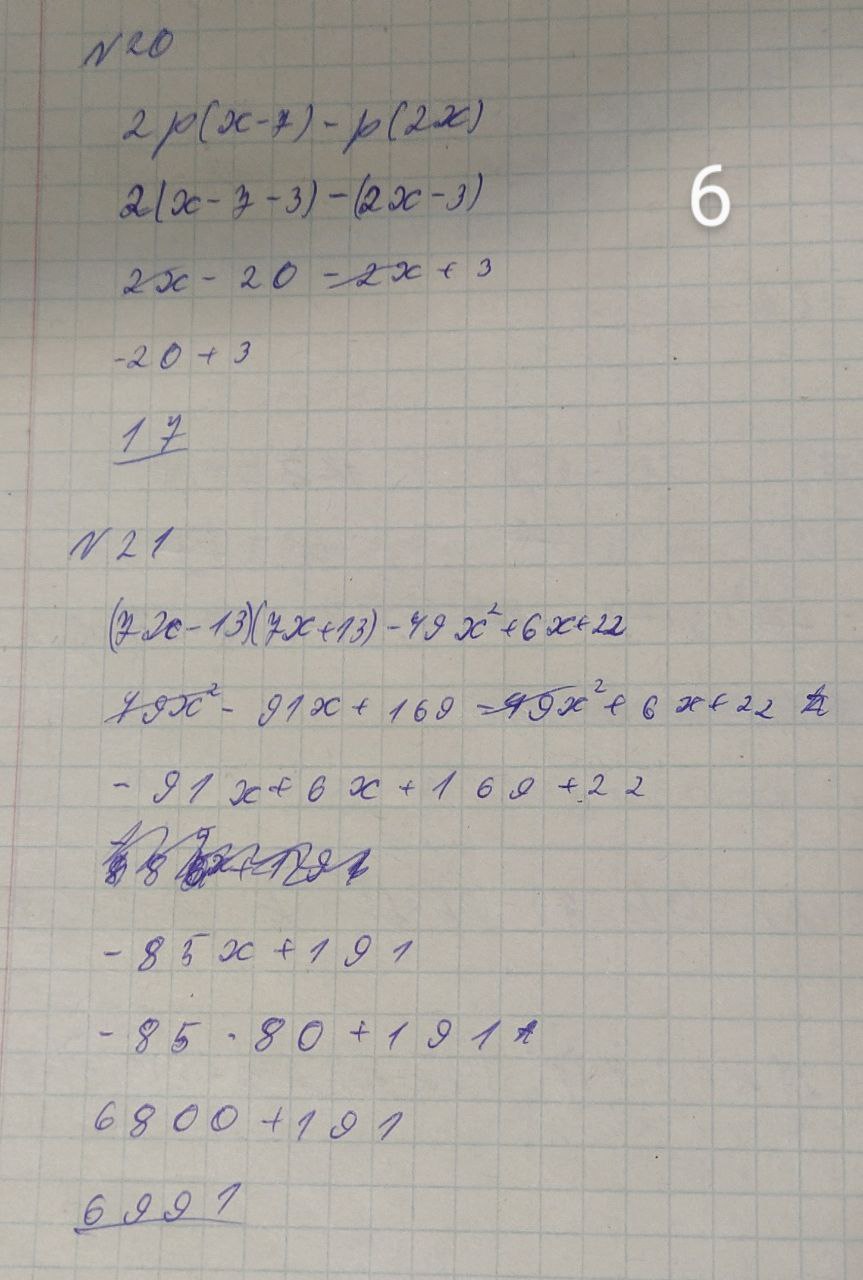 N 20
2p(x-7) - p(2x)
2(x-7-3) - (2x-3)
6
2x - 20 - 2x + 3
-20 + 3
17
N 21
(7x-13)(7x+13) - 49x²+6x+22
49x² - 91x + 169 - 49x² + 6x + 22
- 91x + 6x + 169 + 22
- 85x + 191
- 85 · 80 + 191
6800 + 191
6991